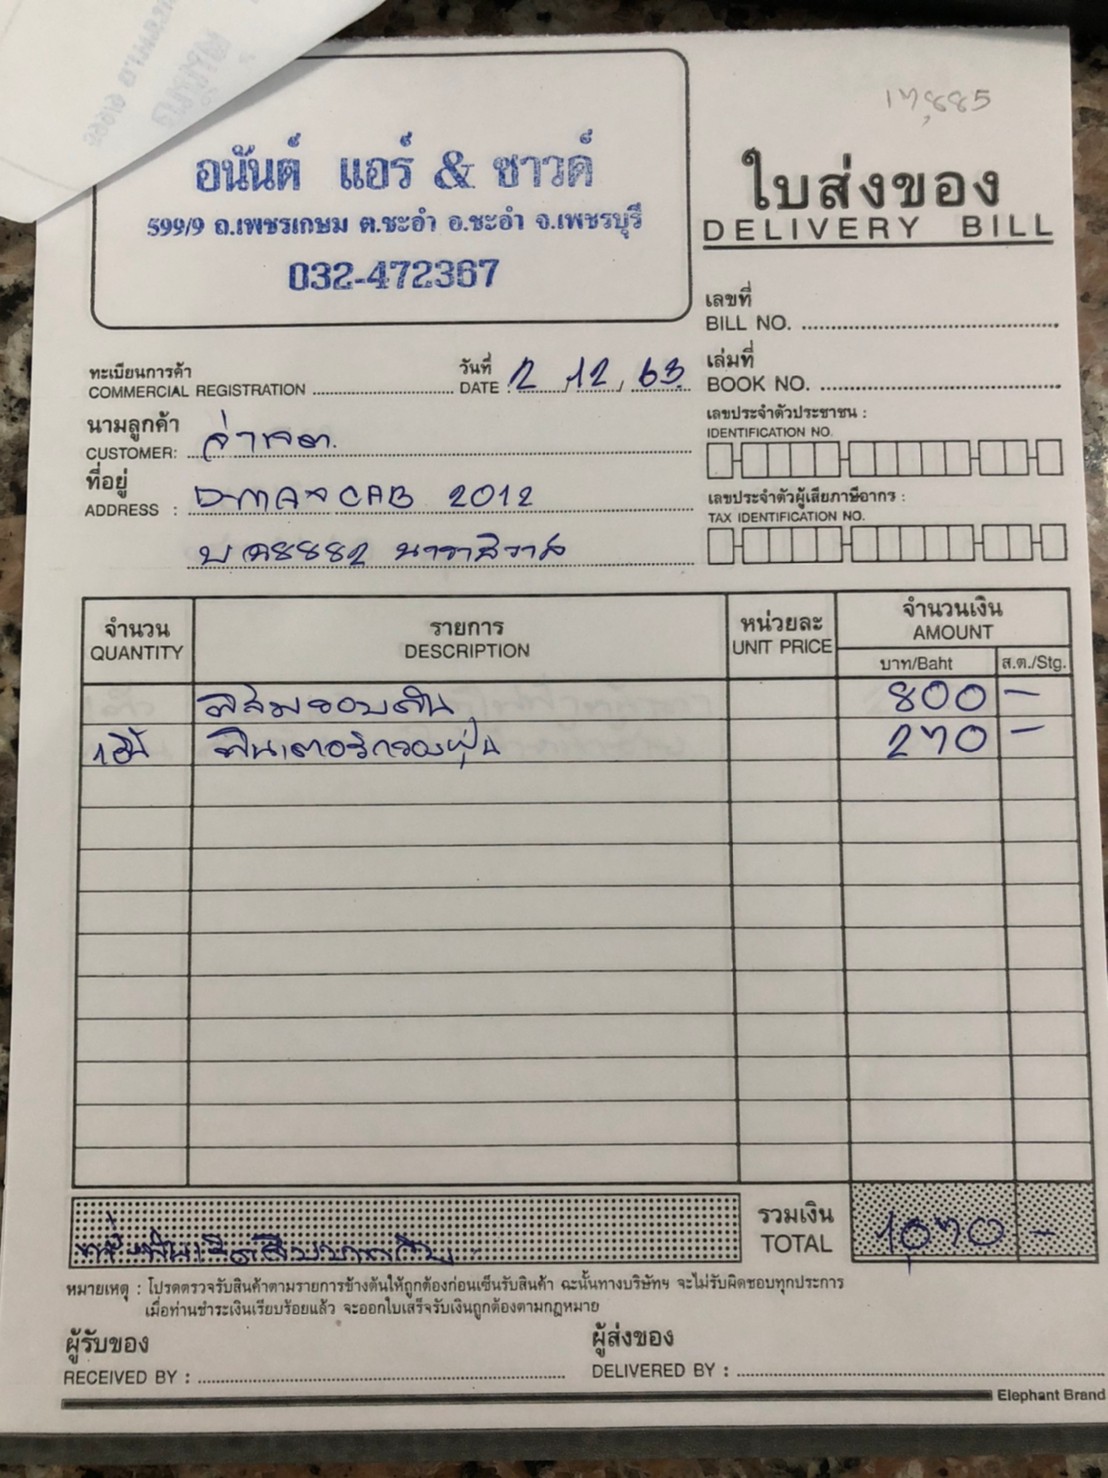 17,885
อนันต์ แอร์ & ซาวด์
599/9 ถ.เพชรเกษม ต.ชะอำ อ.ชะอำ จ.เพชรบุรี
032-472367
ใบส่งของ
DELIVERY BILL
เลขที่
BILL NO.
ทะเบียนการค้า
COMMERCIAL REGISTRATION
วันที่
DATE 2, 12, 63
เล่มที่
BOOK NO.
นามลูกค้า
CUSTOMER:
เลขประจำตัวประชาชน :
IDENTIFICATION NO.
ที่อยู่
ADDRESS : D-MAX CAB 2012
8882 นราธิวาส
เลขประจำตัวผู้เสียภาษีอากร :
TAX IDENTIFICATION NO.
จำนวน
QUANTITY
รายการ
DESCRIPTION
หน่วยละ
UNIT PRICE
จำนวนเงิน
AMOUNT
บาท/Baht ส.ต./Stg.
800 -
ฟิลเตอร์กรองฝุ่น 270 -
หนึ่งพันเจ็ดสิบบาทถ้วน
รวมเงิน
TOTAL 1,070 -
หมายเหตุ : โปรดตรวจรับสินค้าตามรายการข้างต้นให้ถูกต้องก่อนเซ็นรับสินค้า ฉะนั้นทางบริษัทฯ จะไม่รับผิดชอบทุกประการ
เมื่อท่านชำระเงินเรียบร้อยแล้ว จะออกใบเสร็จรับเงินถูกต้องตามกฎหมาย
ผู้รับของ
RECEIVED BY :
ผู้ส่งของ
DELIVERED BY :
Elephant Brand